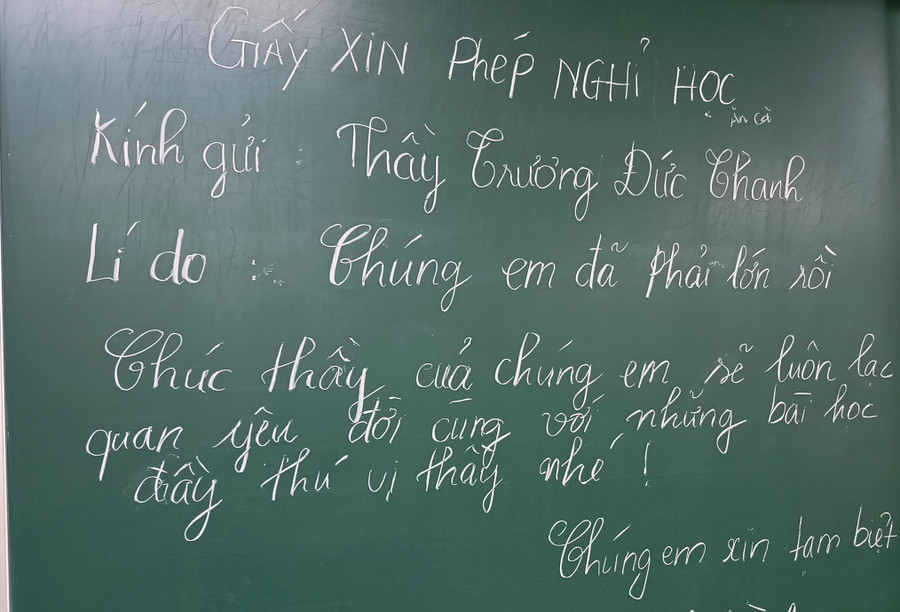 GIẤY XIN PHÉP NGHỈ HỌC
Kính gửi : Thầy Trương Đức Thanh
Lí do : Chúng em đã phải lớn rồi
Chúc thầy cuả chúng em sẽ luôn lạc
quan yêu đời cùng với những bài học
đầy thú vị thầy nhé !
Chúng em xin tạm biệt